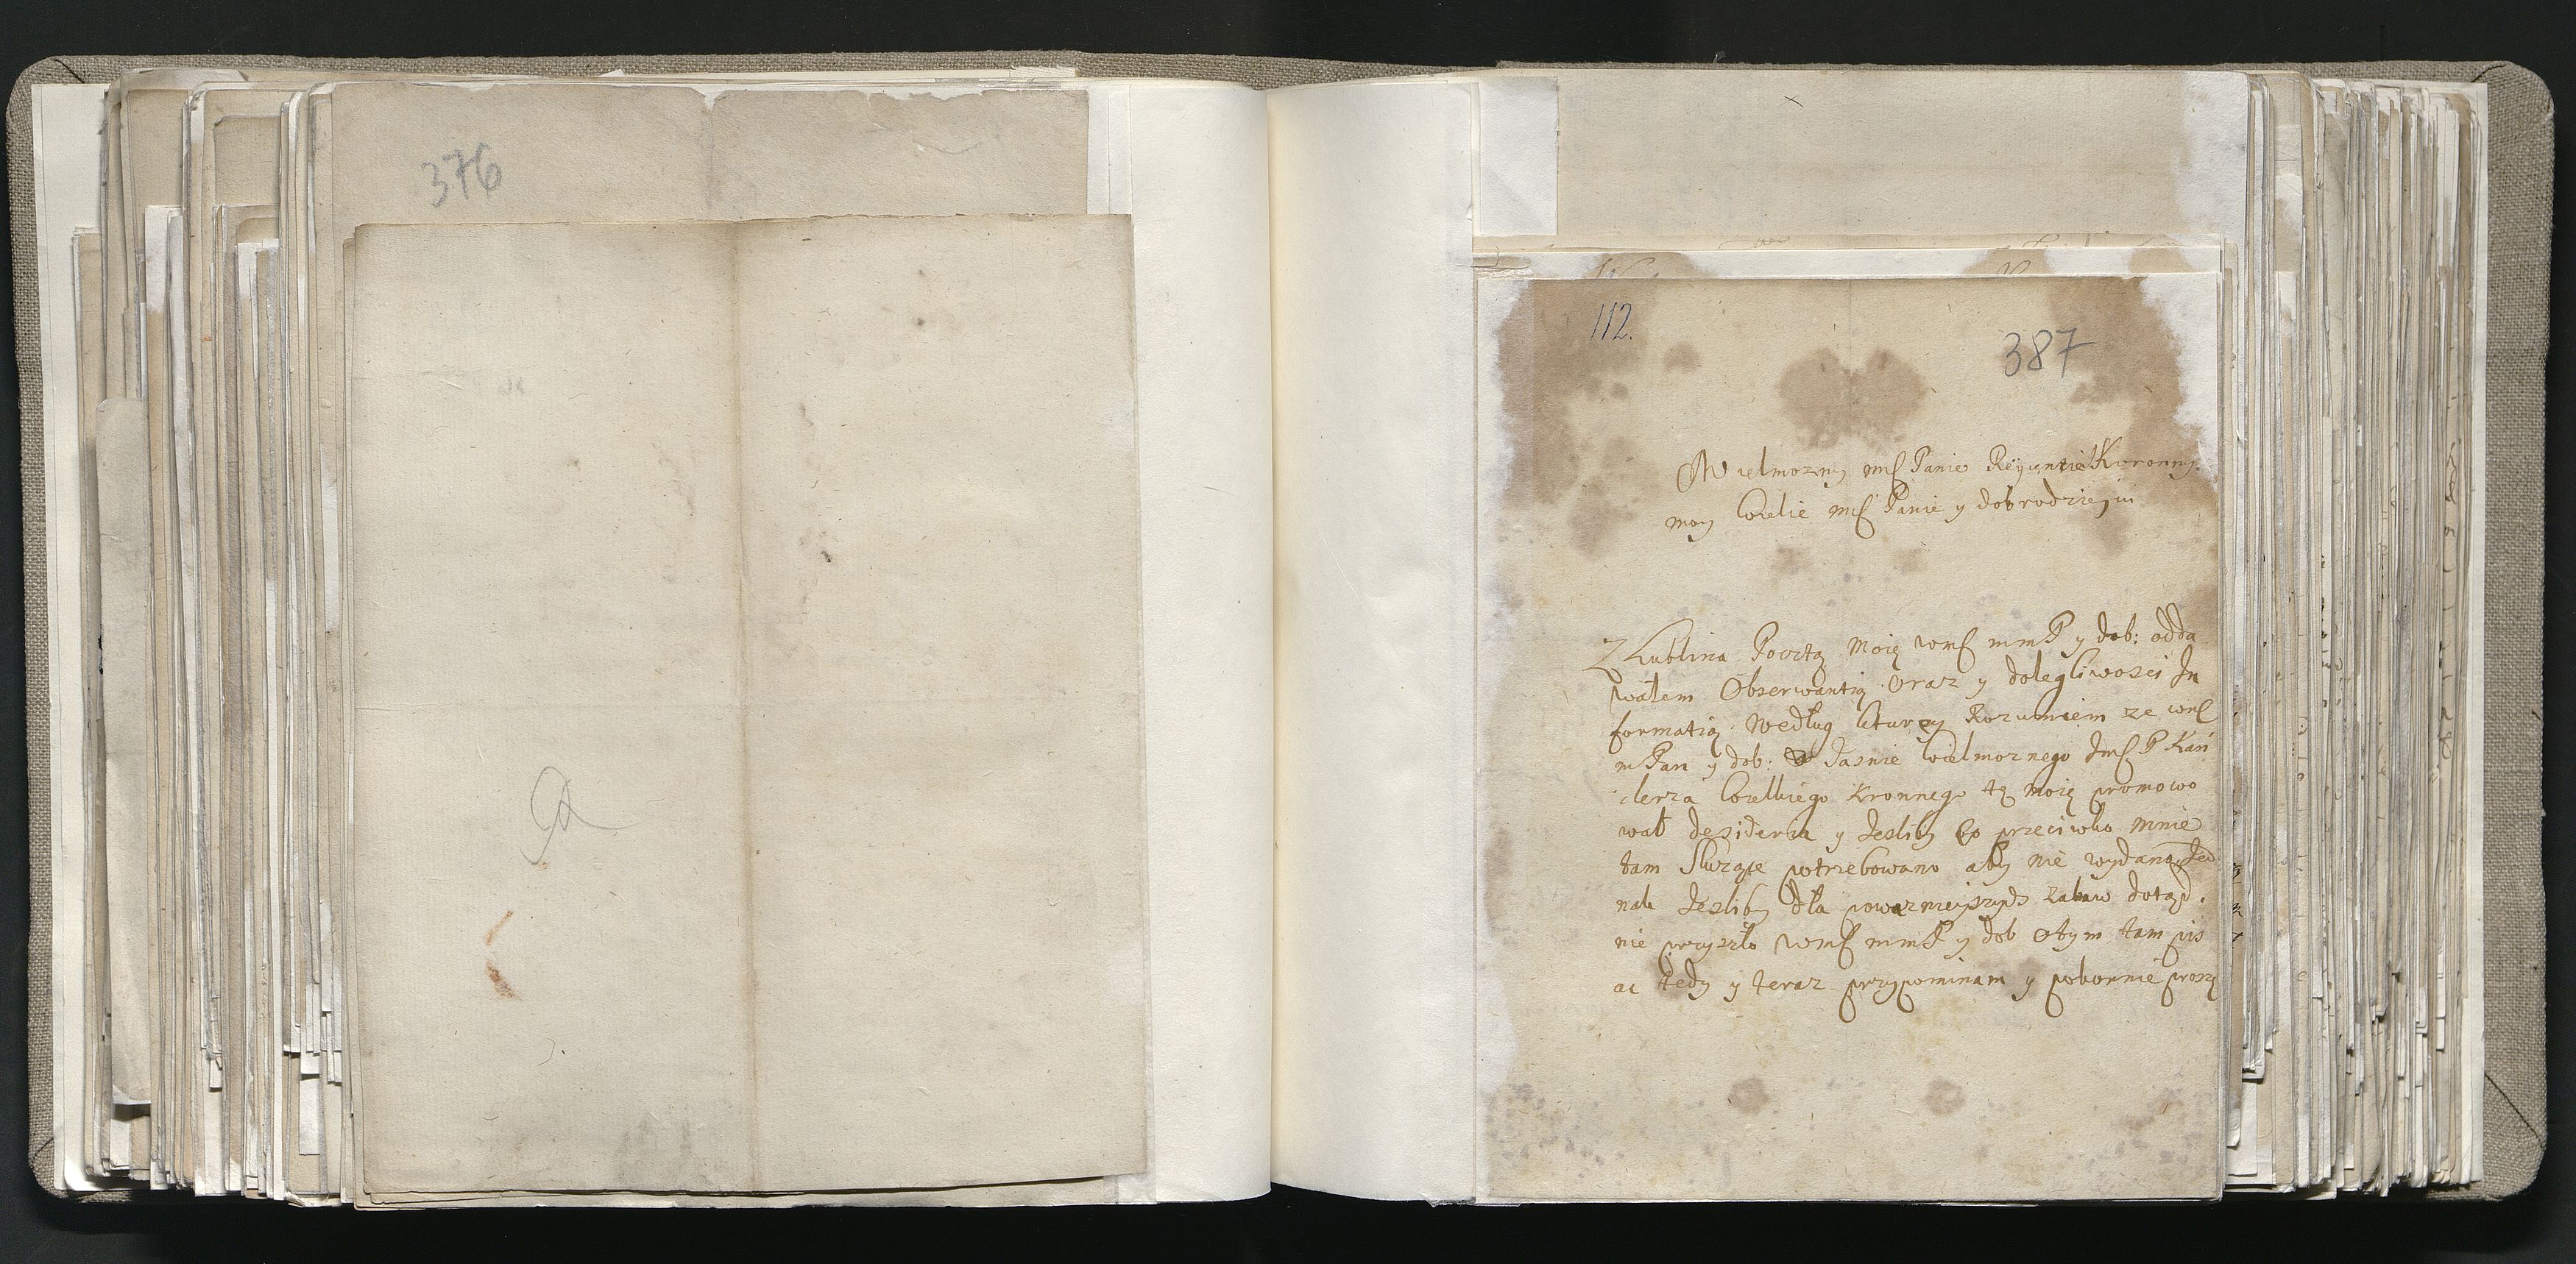 376
112.
387
Wielmozny mś Panie Reyęntie Koronny.
moy Wielie mś Panie y dobrodzieyiu
Z Lublina Pocztą Moię wmś mmP y dob: odda
wałem Obserwantią Oraz y dolegliwosci In
formatią Według ktorey Rozumiem ze wmś
mPan y dob: Jasnie Wielmoznego Jmś P Kan
clerza Wielkiego Kronnego tę moię promowo
wał desideria y Jesliby co przeciwko mnie
tam Słuzące potrzebowano aby nie wydano Jed
nak Jesliby dla powaznieyszych zabaw dotąd.
nie przyszło wmś mmP y dob otym tam pis
ac tedy y teraz przypominam y pokornie proszę